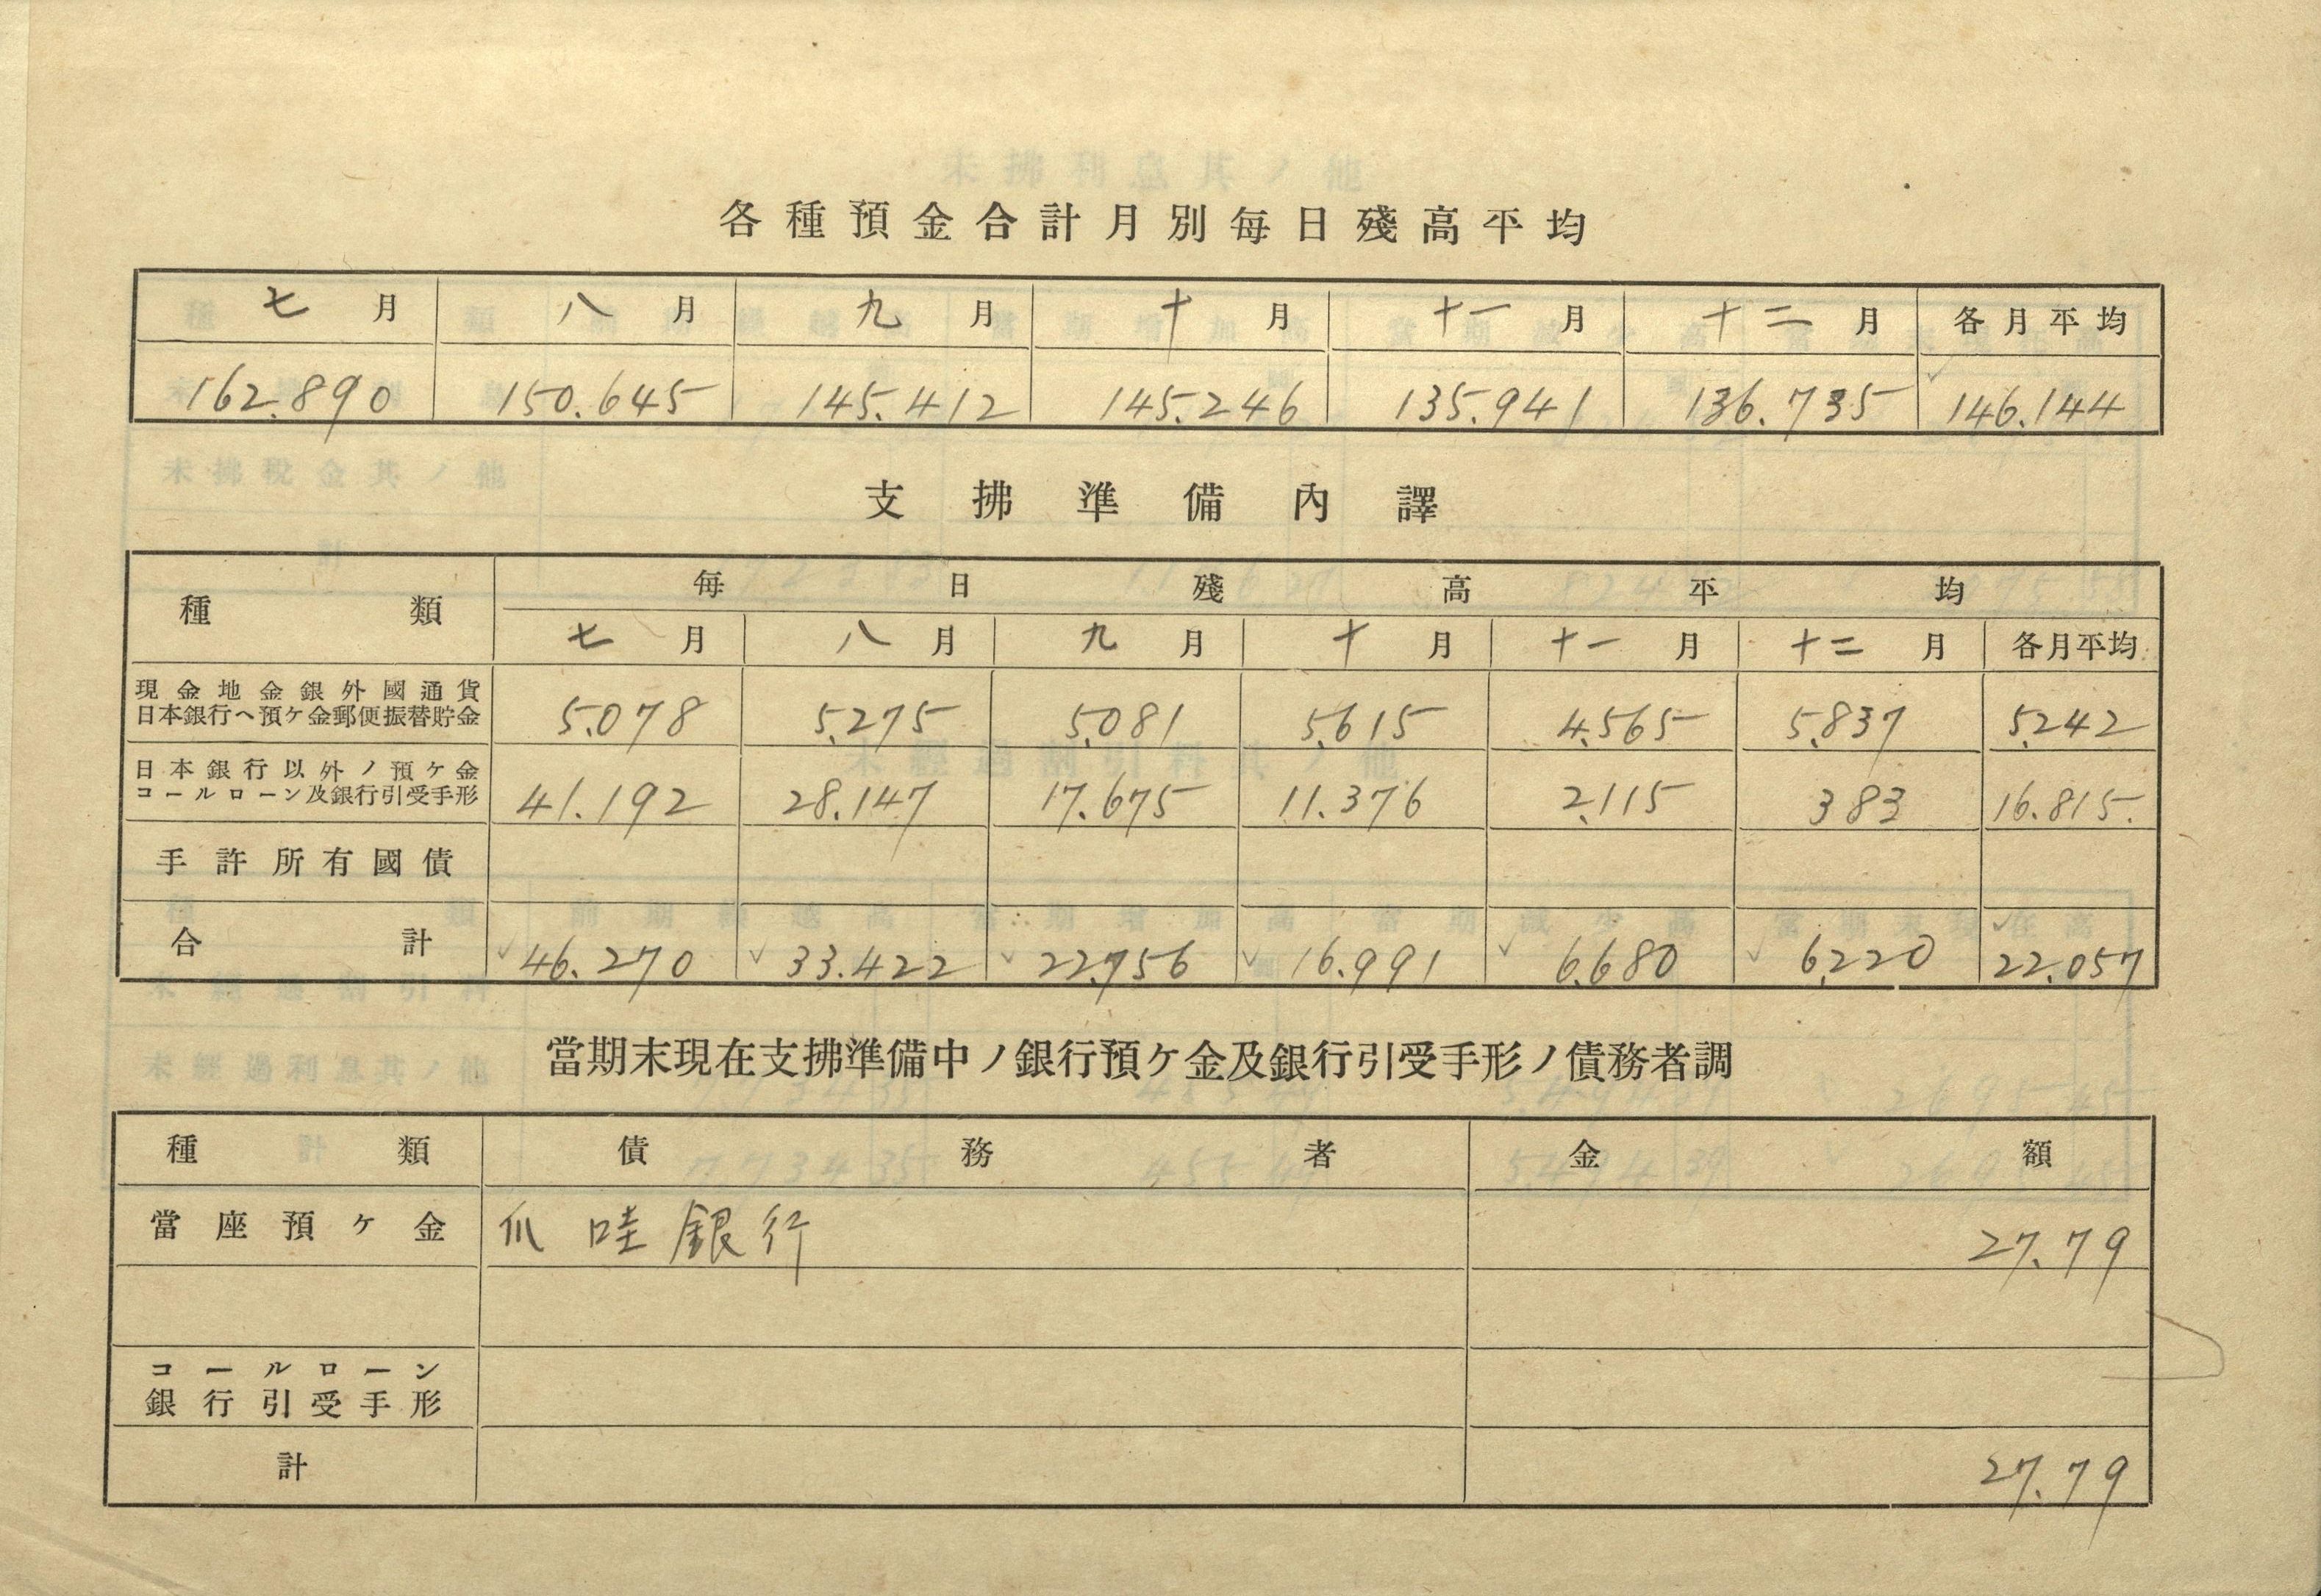 各種預金合計月別每日殘高平均
七月 八月 九月 十月 十一月 十二月 各月平均
162.890 150.645 145.412 145.246 135.941 136.735 146.144
支拂準備內譯
種類 每日殘高平均
七月 八月 九月 十月 十一月 十二月 各月平均
現金地金銀外國通貨
日本銀行ヘ預ケ金郵便振替貯金 5.078 5.275 5.081 5.615 4.565 5.837 5.242
日本銀行以外ノ預ケ金
コールローン及銀行引受手形 41.192 28.147 17.675 11.376 2.115 383 16.815.
手許所有國債
合計 46.270 33.422 22.756 16.991 6.680 6.220 22.057
當期末現在支拂準備中ノ銀行預ケ金及銀行引受手形ノ債務者調
種類 債務者 金額
當座預ケ金 爪哇銀行 27.79
コールローン
銀行引受手形
計 27.79